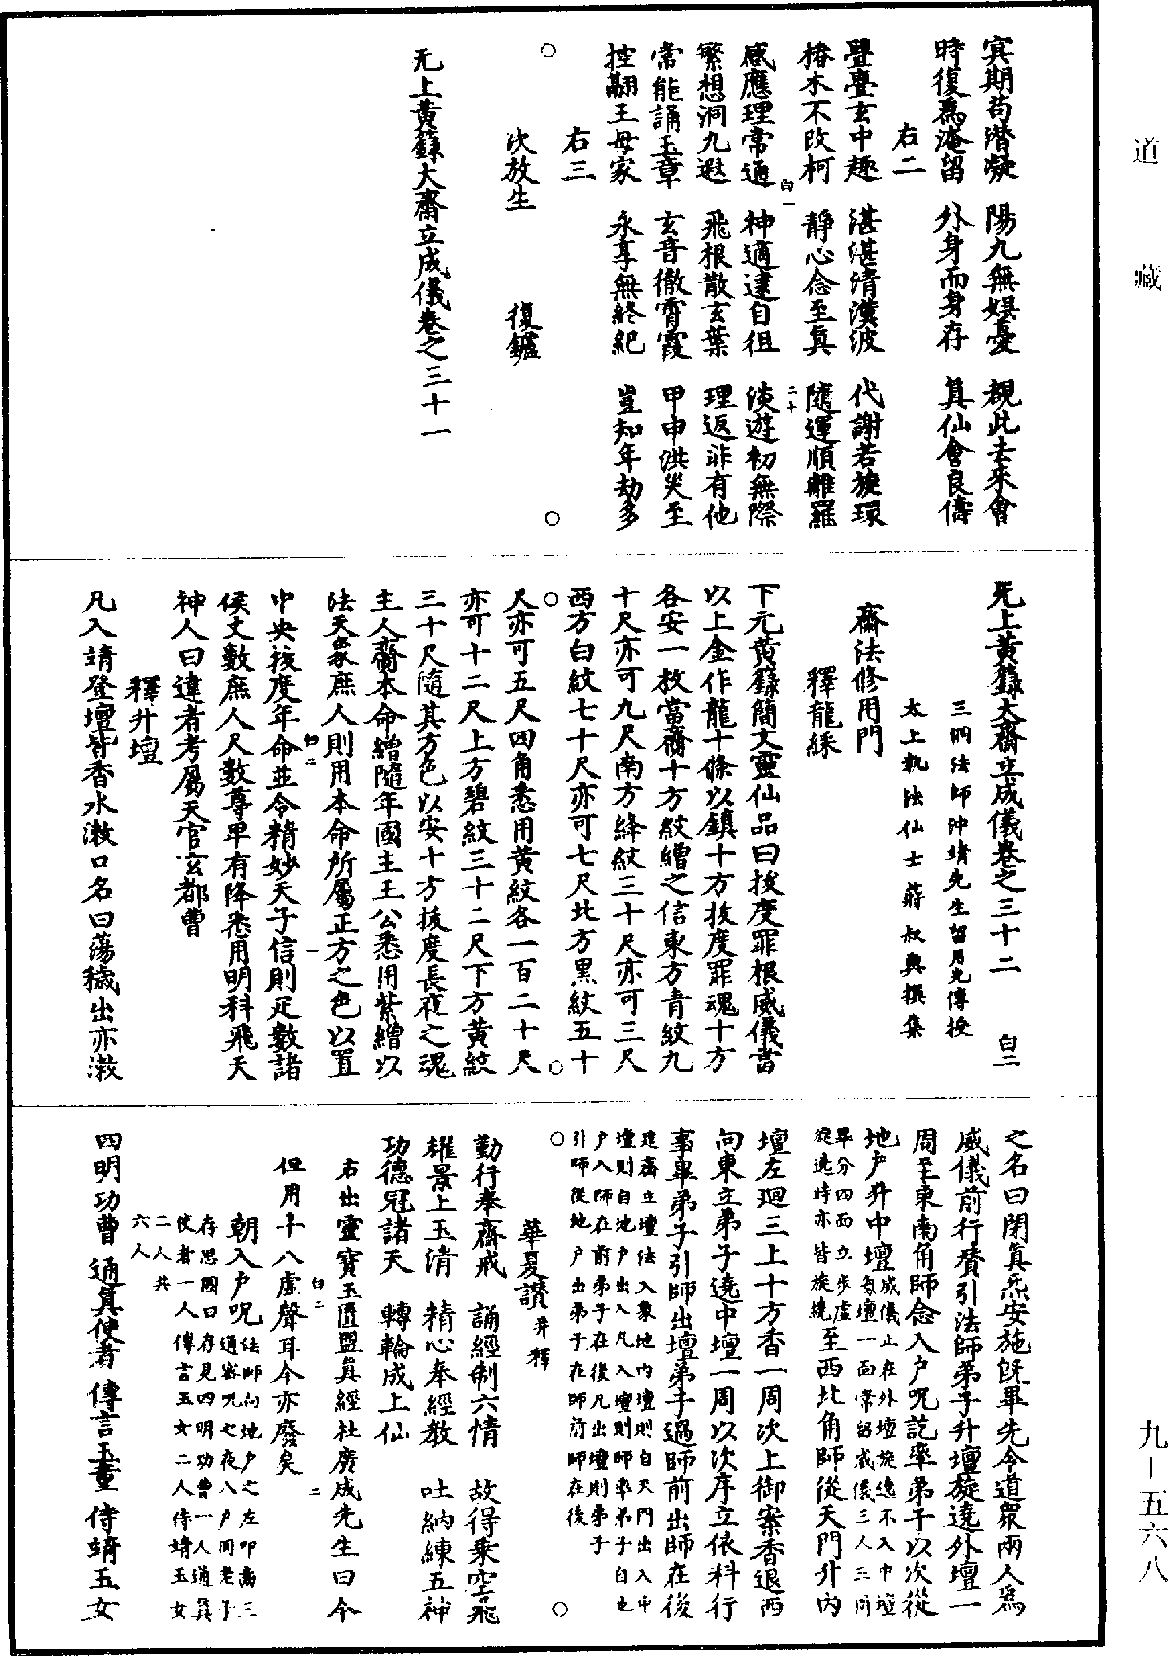 道藏
賔期苟潜凝　陽九無娯憂　覩此去來會
時復爲淹留　外身而身存　真仙會良儔
右二
亹亹玄中趣　湛湛清漢波　代謝若旋環
椿木不改柯　靜心念至真　隨運順離羅
感應理常通　神適逮自徂　淡遊初無際
繁想洞九遐　飛根散玄葉　理返非有他
常能誦玉章　玄音徹霄霞　甲申洪災至
控翮王母家　永享無終紀　豈知年劫多
右三
次放生　復鑪
无上黄籙大齋立成儀卷之三十一
无上黄籙大齋立成儀卷之三十二　白二
三洞法師沖靖先生留用光傳授
太上執法仙士蔣叔輿撰集
齋法修用門
釋龍綵
下元黄籙簡文靈仙品曰拔度罪根威儀當
以上金作龍十條以鎮十方拔度罪魂十方
各安一枚當齋十方紋繒之信東方青紋九
十尺亦可九尺南方絳紋三十尺亦可三尺
西方白紋七十尺亦可七尺北方黑紋五十
尺亦可五尺四角悉用黄紋各一百二十尺
亦可十二尺上方碧紋三十二尺下方黄紋
三十尺隨其方色以安十方拔度長夜之魂
主人齎本命繒隨年國主王公悉用紫繒以
法天象庶人則用本命所屬正方之色以置
中央拔度年命並令精妙天子信則疋數諸
侯丈數庶人尺數尊卑有降悉用明科飛天
神人曰違者考屬天官玄都曹
釋升壇
凡入靖登壇皆香水漱口名曰蕩穢出亦漱
之名曰閉真炁安施既畢先令道衆兩人爲
威儀前行賛引法師弟子升壇旋遶外壇一
周至東南角師念入户呪訖率弟子以次從
地户升中壇威儀止在外壇旋遶不入中壇每壇一面常留威儀三人三問畢分四面立步虛旋遶時亦皆旋繞至西北角師從天門升内
壇左廻三上十方香一周次上御案香退西
向東立弟子遶中壇一周以次序立依科行
事畢弟子引師出壇弟子過師前出師在後
建齋立壇法入象地内壇則自天門出入中
壇則自地户出入凡入壇則師率弟子自地
户入師在前弟子在後凡出壇則弟子
引師從地户出弟子在師前師在後
華夏讃并釋
勤行奉齋戒　誦經制六情　故得乘空飛
權景上玉清　精心奉經教　吐納練五神
功德冠諸天　轉輪成上仙
右出靈寶玉匱盟真經杜廣成先生曰今
但用平八虛聲耳今亦廢矣
朝入户呪法師向地户之左叩齒三通密呪七夜入户同老子
存思圖曰存見四明功曹一人通真
使者一人傳言玉女二人侍靖玉女
二人共
六人
四明功曹　通真使者　傳言玉童　侍靖玉女
九－五六八